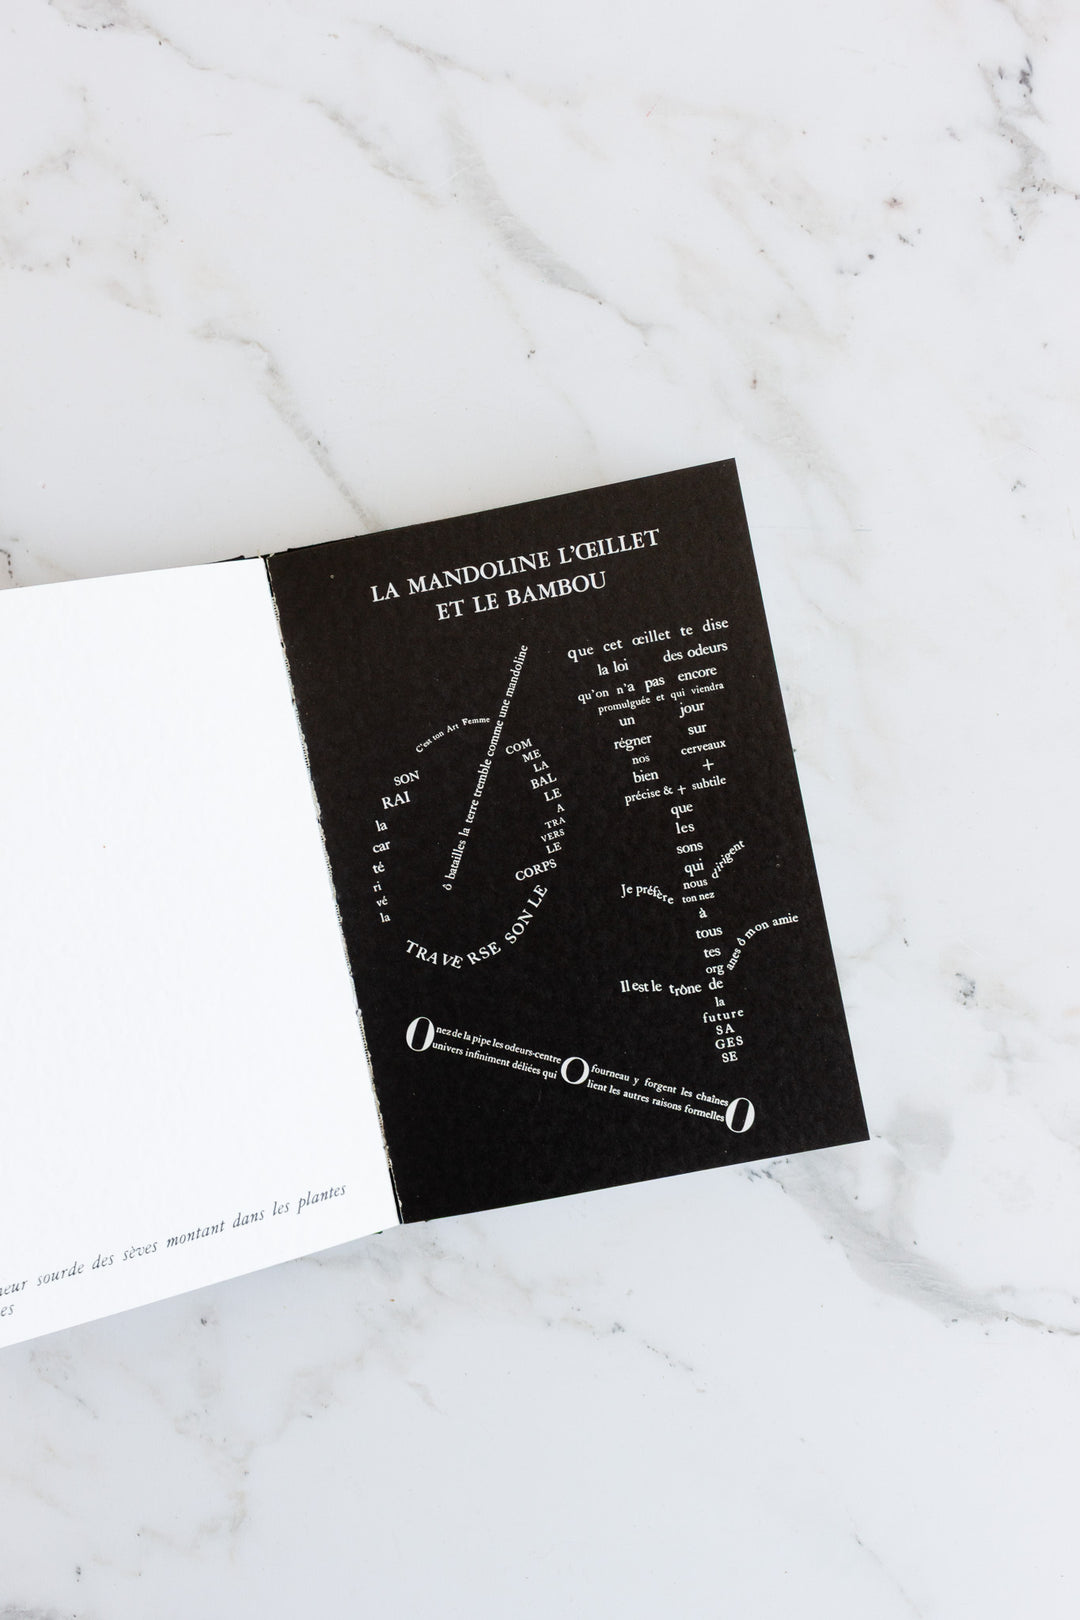 LA MANDOLINE L'ŒILLET
ET LE BAMBOU
ô batailles la terre tremble comme une mandoline
COM
ME
LA
BAL
LE
A
TRA
VERS
LE
CORPS
SON LE
TRAVERSE
la
vé
ri
té
car
la
RAI
SON
C'est ton Art Femme
que cet œillet te dise
la loi des odeurs
qu'on n'a pas encore
promulguée et qui viendra
un jour
régner sur
nos cerveaux
bien +
précise & + subtile
que
les
sons
qui
nous dirigent
Je préfère ton nez
à
tous
tes
organes ô mon amie
Il est le trône de
la
future
SA
GES
SE
O nez de la pipe les odeurs-centre O fourneau y forgent les chaînes
univers infiniment déliées qui lient les autres raisons formelles O
eur sourde des sèves montant dans les plantes
es